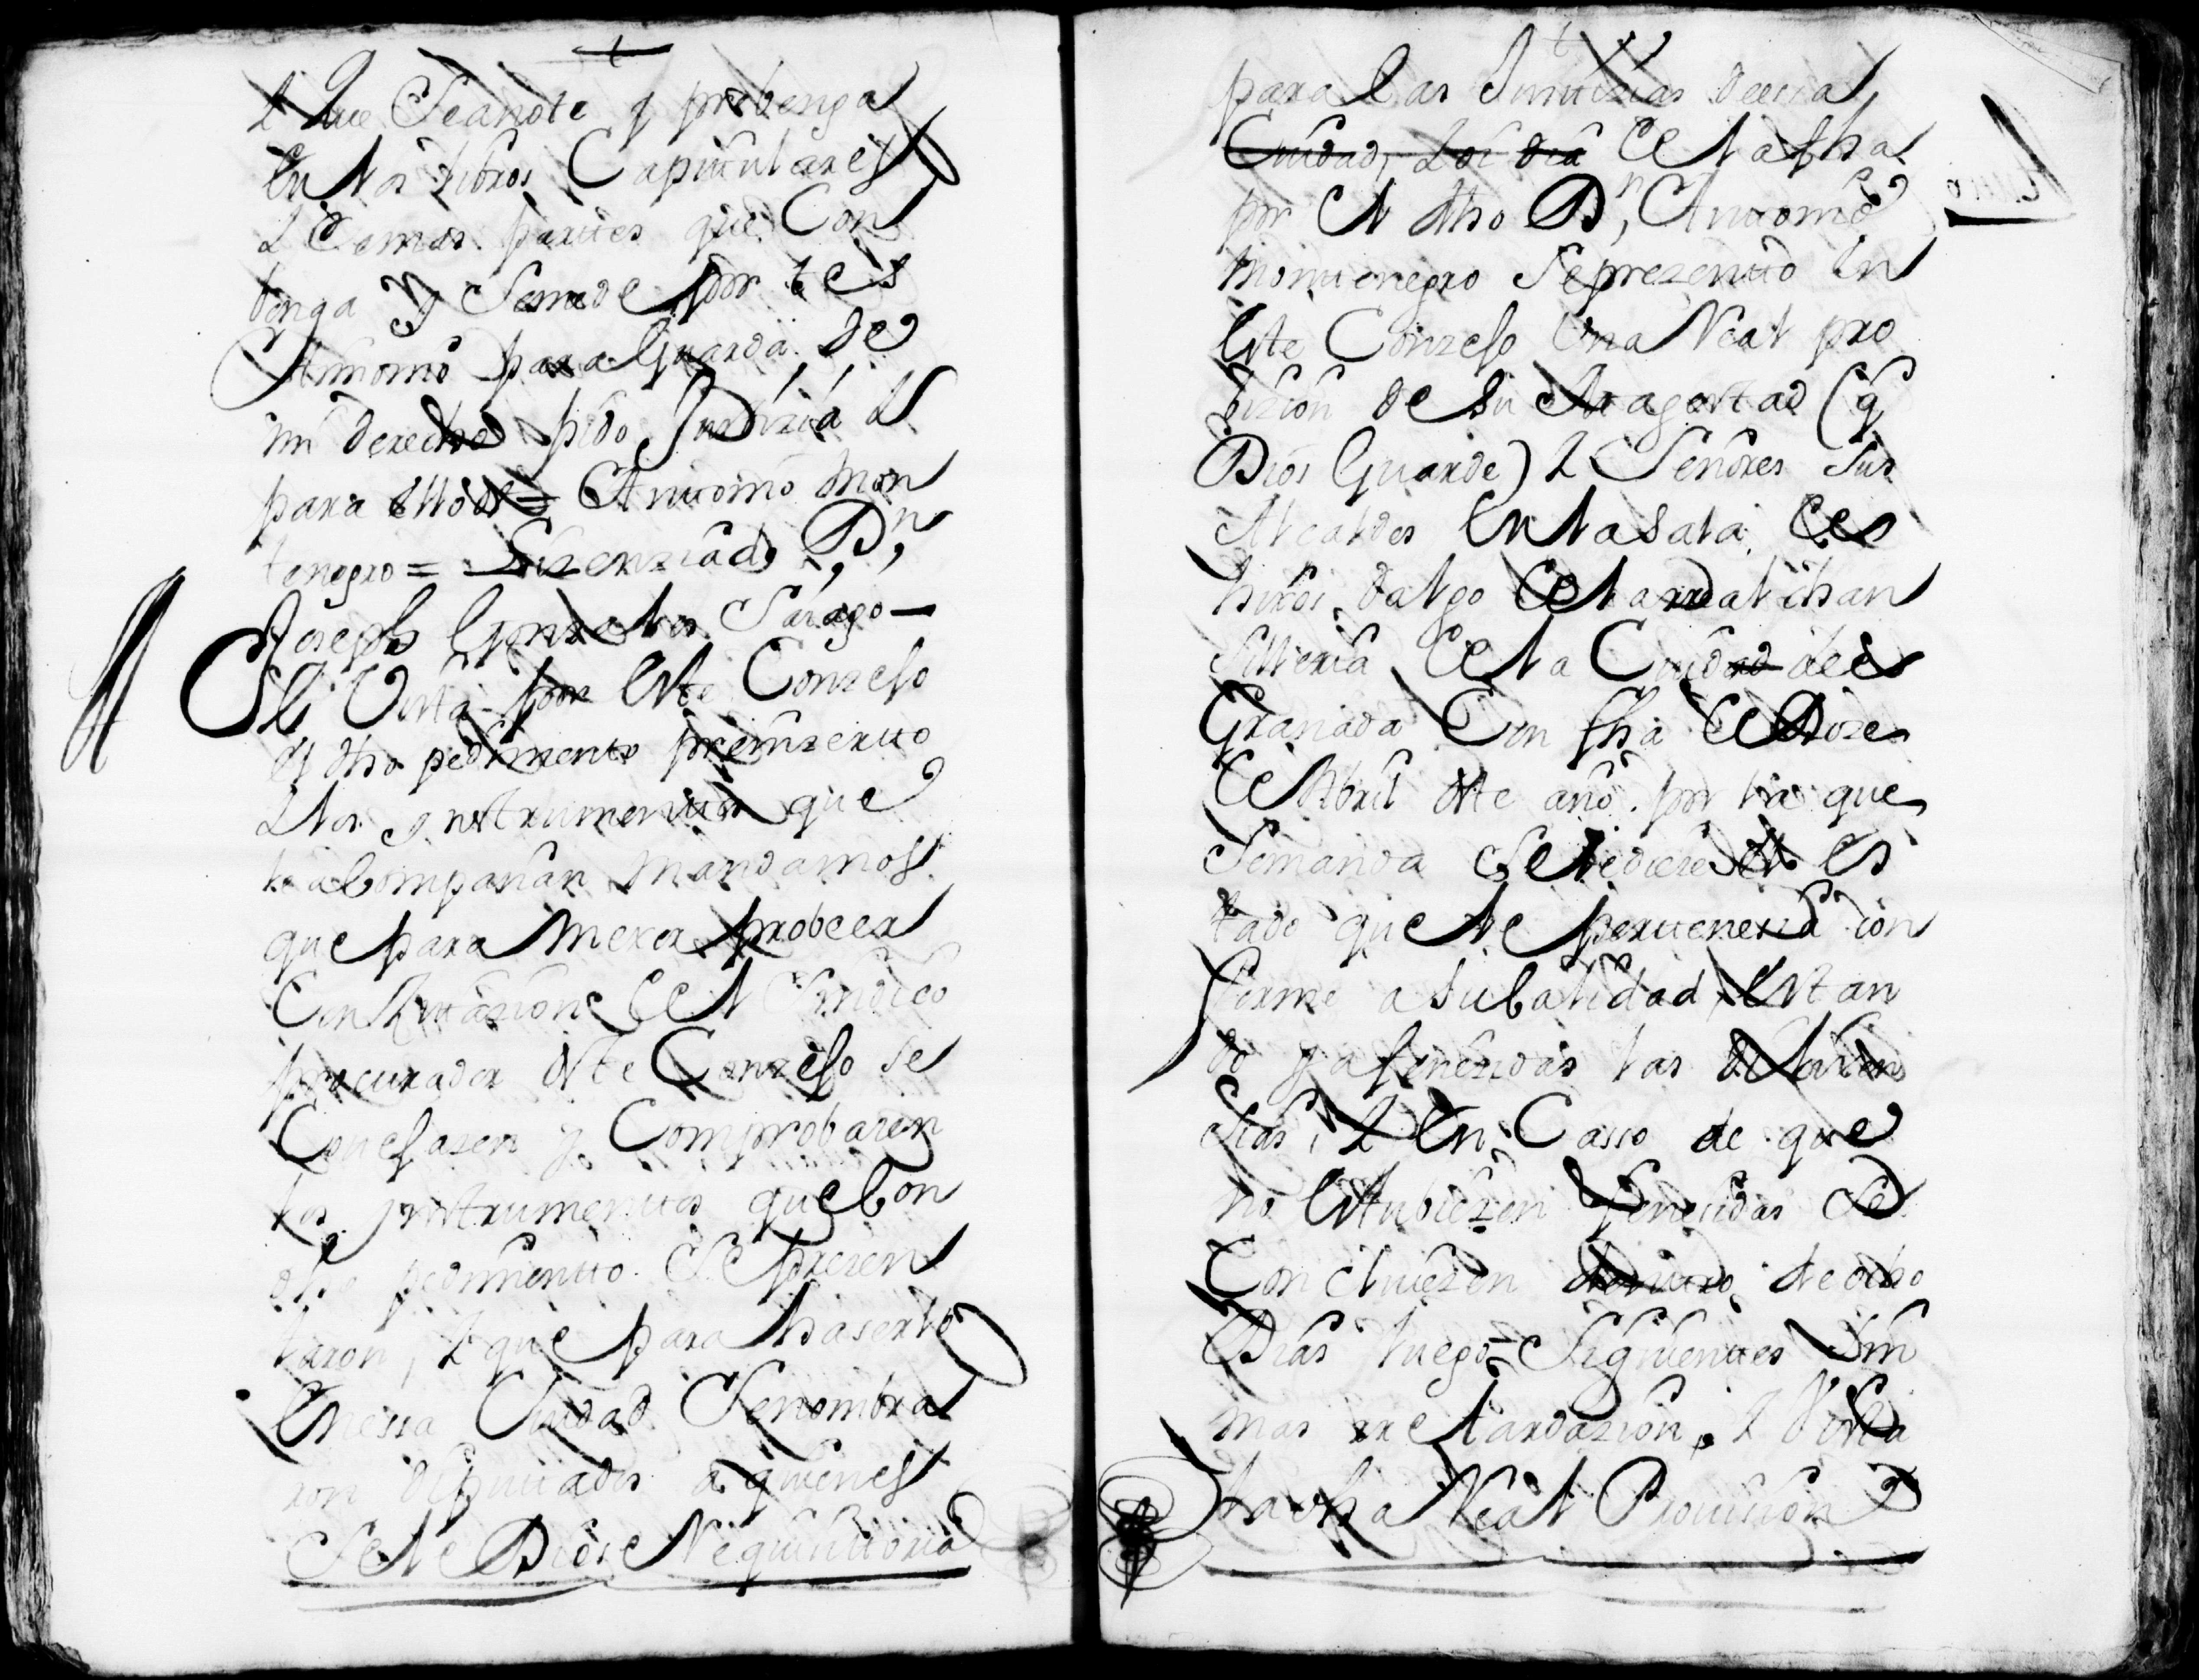 Y que se anote y prebenga
en los libros Capitulares
Y demas partes que Con
benga y se me de por tes
timonio para Guarda de
mi derecho pido Justizia Y
para ello &= Antonio Mon
tenegro = Lizenziado Dn,
Joseph Gonzales Sarago—
El Vista por este Conzejo
el dho pedimento preinzerto
Y los instrumentos que
le acompañan Mandamos
que para Mexor probeer
Con Zitazion del Sindico
procurador deste Conzejo se
Cotejasen y Comprobasen
los instrumentos que Con
dho pedimento Se prezen
taron, Y que para haserlo
en essa Ciudad Se nombra
ron diputados a quienes
Se le Diese Requisitoria
para las Justizias de essa
Ciudad, de la fha
por el dho Dn, Antonio
Montenegro Se prezento en
este Conzejo Una Real pro
bizion de Su Magestad (q
Dios Guarde) Y Señores Sus
Alcaldes en la Sala de
hixos dalgo de la real chan
silleria de la Ciudad de
Granada Con fha de Doze
de Abril deste año por la que
Se manda Se le diese el es
tado que le pertenecia con
forme a Su Calidad, estan
do ya fenezidas las dilixen
cias, Y en Casso de que
no estubiezen fenecidas Se
Concluiezen dentro de ocho
Dias luego Siguientes Sin
mas retardazion, Y Vista
la dha Real Provision